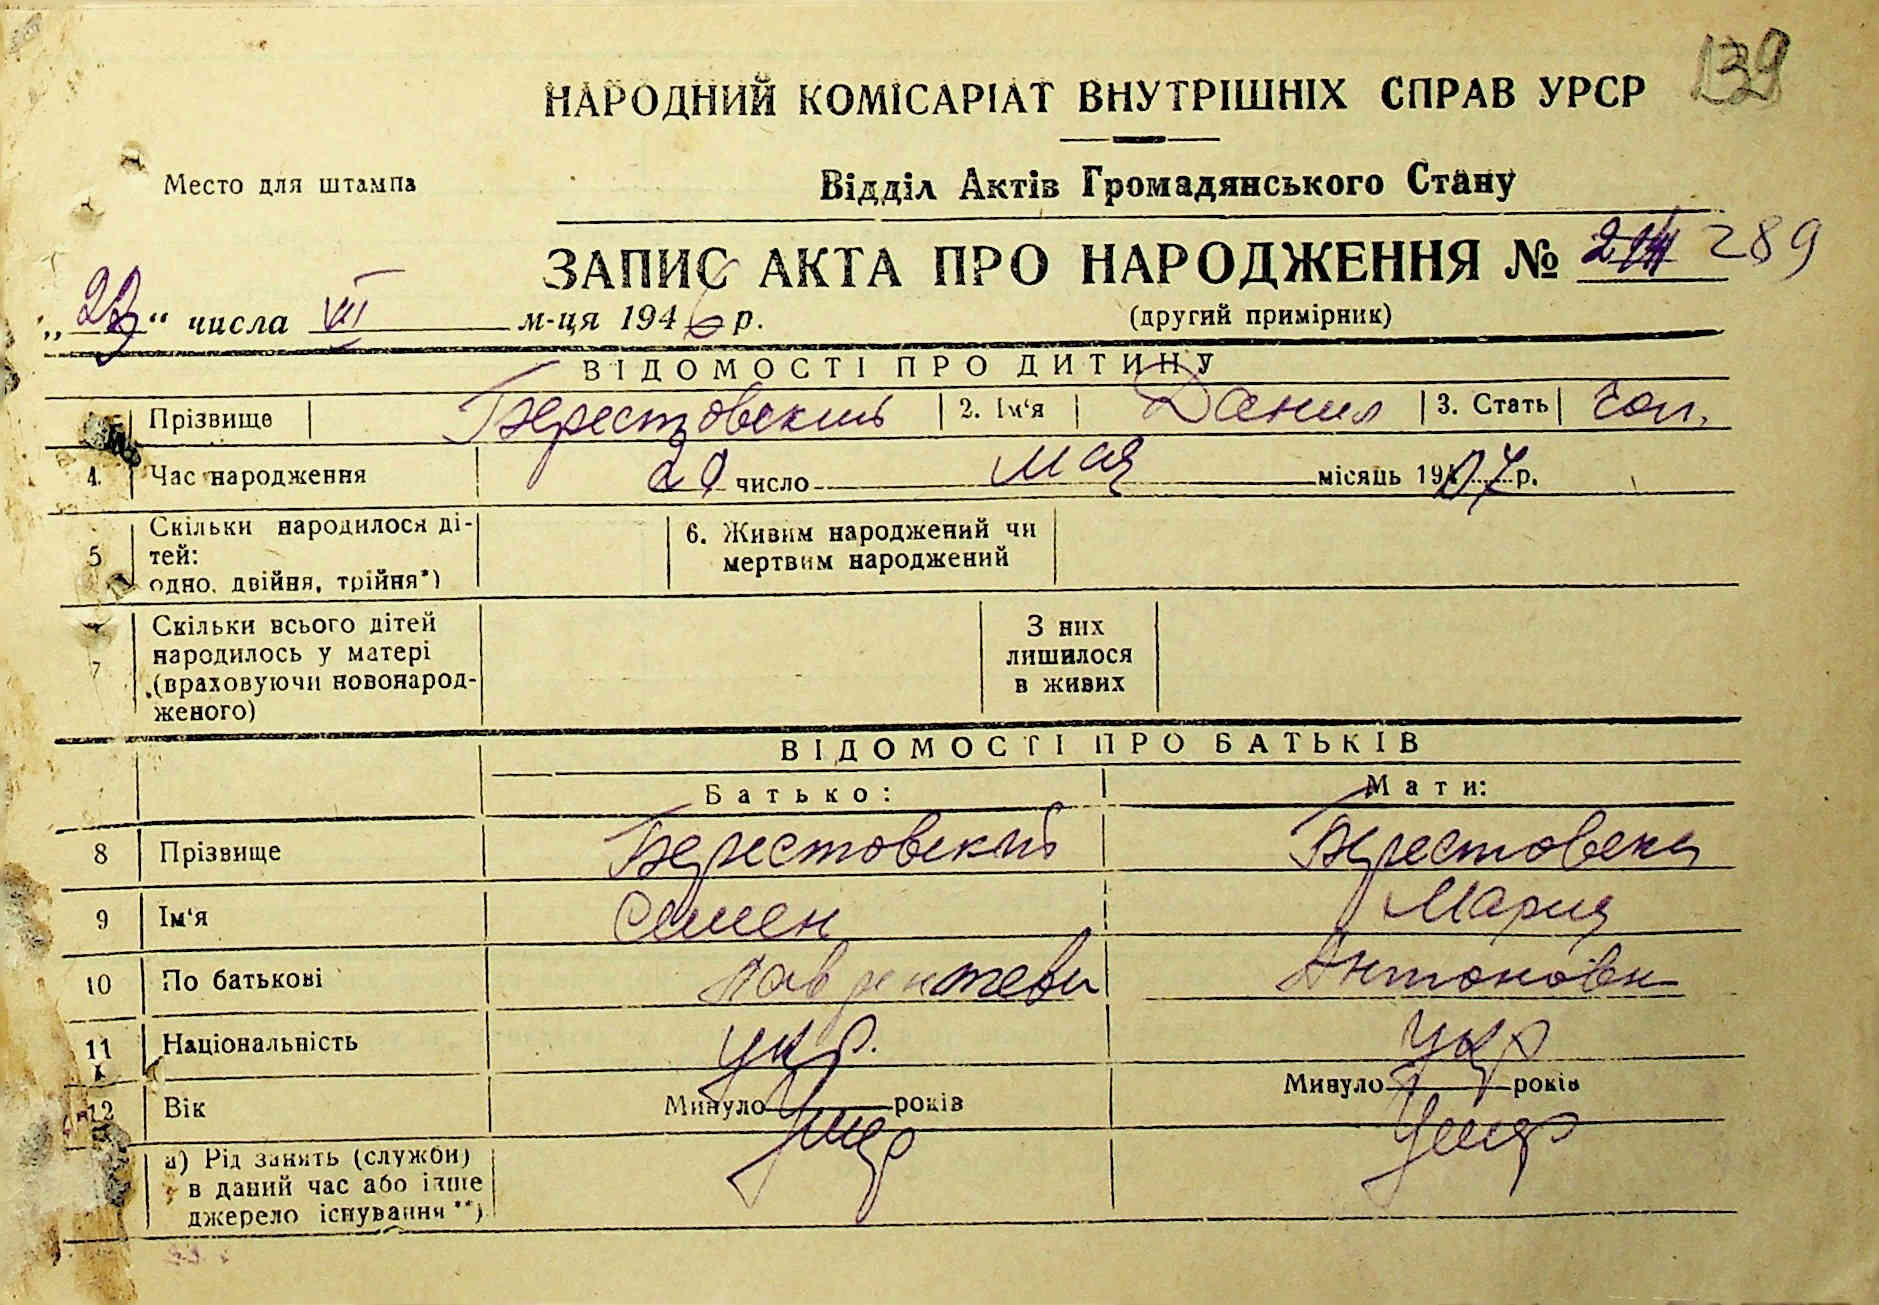 139
НАРОДНИЙ КОМІСАРІАТ ВНУТРІШНІХ СПРАВ УРСР
Место для штампа
Відділ Актів Громадянського Стану
ЗАПИС АКТА ПРО НАРОДЖЕННЯ № 289
„23“ числа VII м-ця 1946 р.
(другий примірник)
ВІДОМОСТІ ПРО ДИТИНУ
Прізвище Берестовский 2. Ім‘я Данил 3. Стать чол.
4. Час народження число мая місяць 1907 р.
5 Скільки народилося ді-
тей:
одно, двійня, трійня*)
6. Живим народжений чи
мертвим народжений
7 Скільки всього дітей
народилось у матері
(враховуючи новонарод-
женого)
З них
лишилося
в живих
ВІДОМОСТІ ПРО БАТЬКІВ
Батько: Мати:
8 Прізвище Берестовский Берестовска
9 Ім‘я Семен Мария
10 По батькові Лаврентеви Антоновн
11 Національність укр. укр
12 Вік Минуло років Минуло років
Умер Умер
а) Рід занять (служби)
в даний час або інше
джерело існування**)